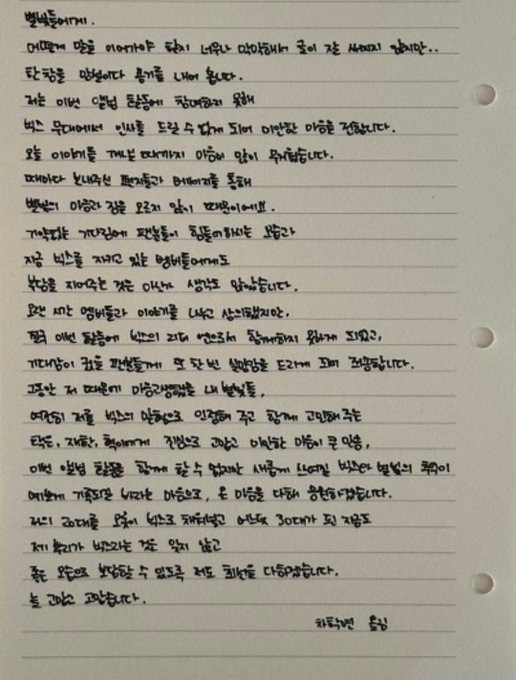 별빛들에게.
어떻게 말을 이어가야 할지 너무나 막막해서 글이 잘 써지지 않지만..
한참을 망설이다 용기를 내어 봅니다.
저는 이번 앨범 활동에 참여하지 못해
빅스 무대에서 인사를 드릴 수 없게 되어 미안한 마음을 전합니다.
오늘 이야기를 꺼낼 때까지 마음이 많이 무거웠습니다.
때마다 보내주신 편지들과 메세지를 통해
별빛의 마음과 짐을 모르지 않기 때문이에요.
기약없는 기다림에 팬분들이 힘들어하시는 모습과
지금 빅스를 지키고 있는 멤버들에게도
부담을 지어주는 것은 아닌가 생각도 많았습니다.
오랜 시간 멤버들과 이야기를 나누고 상의했지만,
결국 이번 활동에 빅스의 리더 엔으로서 함께하지 못하게 되었고,
기대감이 컸을 팬분들께 또 한 번 실망감을 드리게 되어 죄송합니다.
그동안 저 때문에 마음고생했을 내 별빛들,
여전히 저를 빅스의 맏형으로 인정해 주고 함께 고민해 주는
택운, 재환, 혁이에게 진심으로 고맙고 미안한 마음이 큰 만큼,
이번 앨범 활동을 함께 할 수 없지만 새롭게 쓰여질 빅스와 별빛의 추억이
예쁘게 기록되길 바라는 마음으로, 온 마음을 다해 응원하겠습니다.
저의 20대를 오롯이 빅스로 채워넣고 어느덧 30대가 된 지금도
제 뿌리가 빅스라는 것을 잊지 않고
좋은 모습으로 보답할 수 있도록 저도 최선을 다하겠습니다.
늘 고맙고 고맙습니다.
차학연 올림